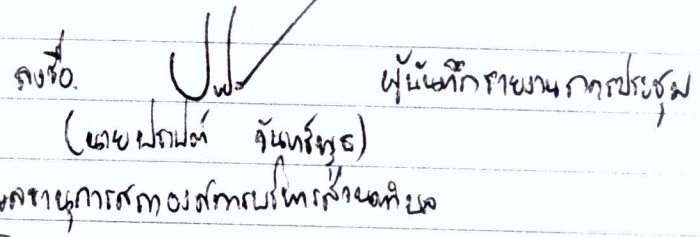 ลงชื่อ. ผู้บันทึกรายงานการประชุม
(นาย จันทร์พุธ)
เลขานุการสภาองค์การบริหารส่วนตำบล